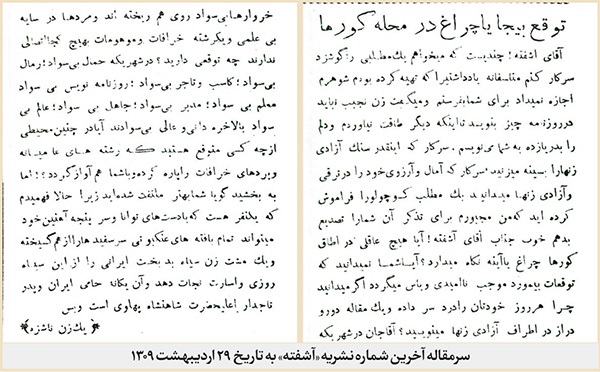 توقع بیجا یا چراغ در محله کورها
آقای آشفته! چندیست که میخواهم یك مطلبی را گوشزد
سرکار کنم متاسفانه یادداشتیرا که تهیه کرده بودم شوهرم
اجازه نمیداد برای شما بفرستم و میگفت زن نجیب نباید
در روزنامه چیز بنویسد تا اینکه دیگر طاقت نیاوردم و دلم
را بدریا زده به شما می نویسم. سرکار که اینقدر سنك آزادی
زنها را بسینه میزنید سرکار که آمال و آرزوی خود را در ترقی
و آزادی زنها میدانید یك مطلب کوچولو را فراموش
کرده اید که من مجبورم برای تذکر آن شما را تصدیع
بدهم خوب جناب آقای آشفته! آیا هیچ عاقلی در اطاق
کورها چراغ یا آینه نگاه میدارد؟ آیا شما نمیدانید که
توقعات بیمورد موجب ناامیدی و یأس میگردد اگر میدانید
چرا هر روز خودتان را درد سر داده و یك مقاله دور و
دراز در اطراف آزادی زنها مینویسید؟ آقاجان در شهریکه
خروارها بی سواد روی هم ریخته اند و مردها در سایه
بی علمی و یکرشته خرافات و موهومات بهیچ کجا اتصالی
ندارند چه توقعی دارید؟ در شهریکه حمال بی سواد؛ رمال
بی سواد؛ کاسب و تاجر بی سواد؛ روزنامه نویس بی سواد
معلم بی سواد؛ مدیر بی سواد؛ جاهل بی سواد؛ عالم بی
سواد بالاخره دانی و عالی بی سوادند آیا در چنین محیطی
از چه کسی متوقع هستید که رشته های عامیانه
و پردهای خرافات را پاره کرده و باشما هم آواز گردد؟!! اما
به بخشید گویا شما بهتر ملتفت شده اید زیرا حالا فهمیدم
که یکنفر هست که با دست های توانا و سر پنجه آهنین خود
میتواند تمام بافته های عنکبوتی سر سفیدها را از هم گسیخته
و یك مشت زن سیاه بدبخت ایرانی را از این سیاه
روزی و اسارت نجات دهد و آن یگانه حامی ایران و پدر
تاجدار اعلیحضرت شاهنشاه پهلوی است و بس
«یك زن ناشزه»
سرمقاله آخرین شماره نشریه «آشفته» به تاریخ ۲۹ اردیبهشت ۱۳۰۹